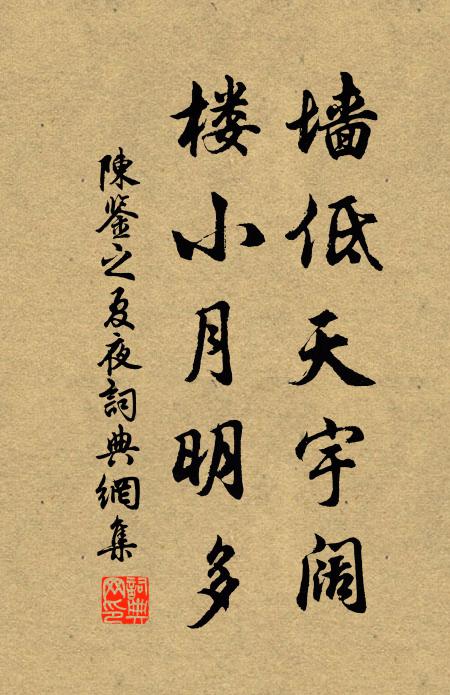 墙低天宇阔
楼小月明多
陳鉴之夏夜詞典網集
詞典网印